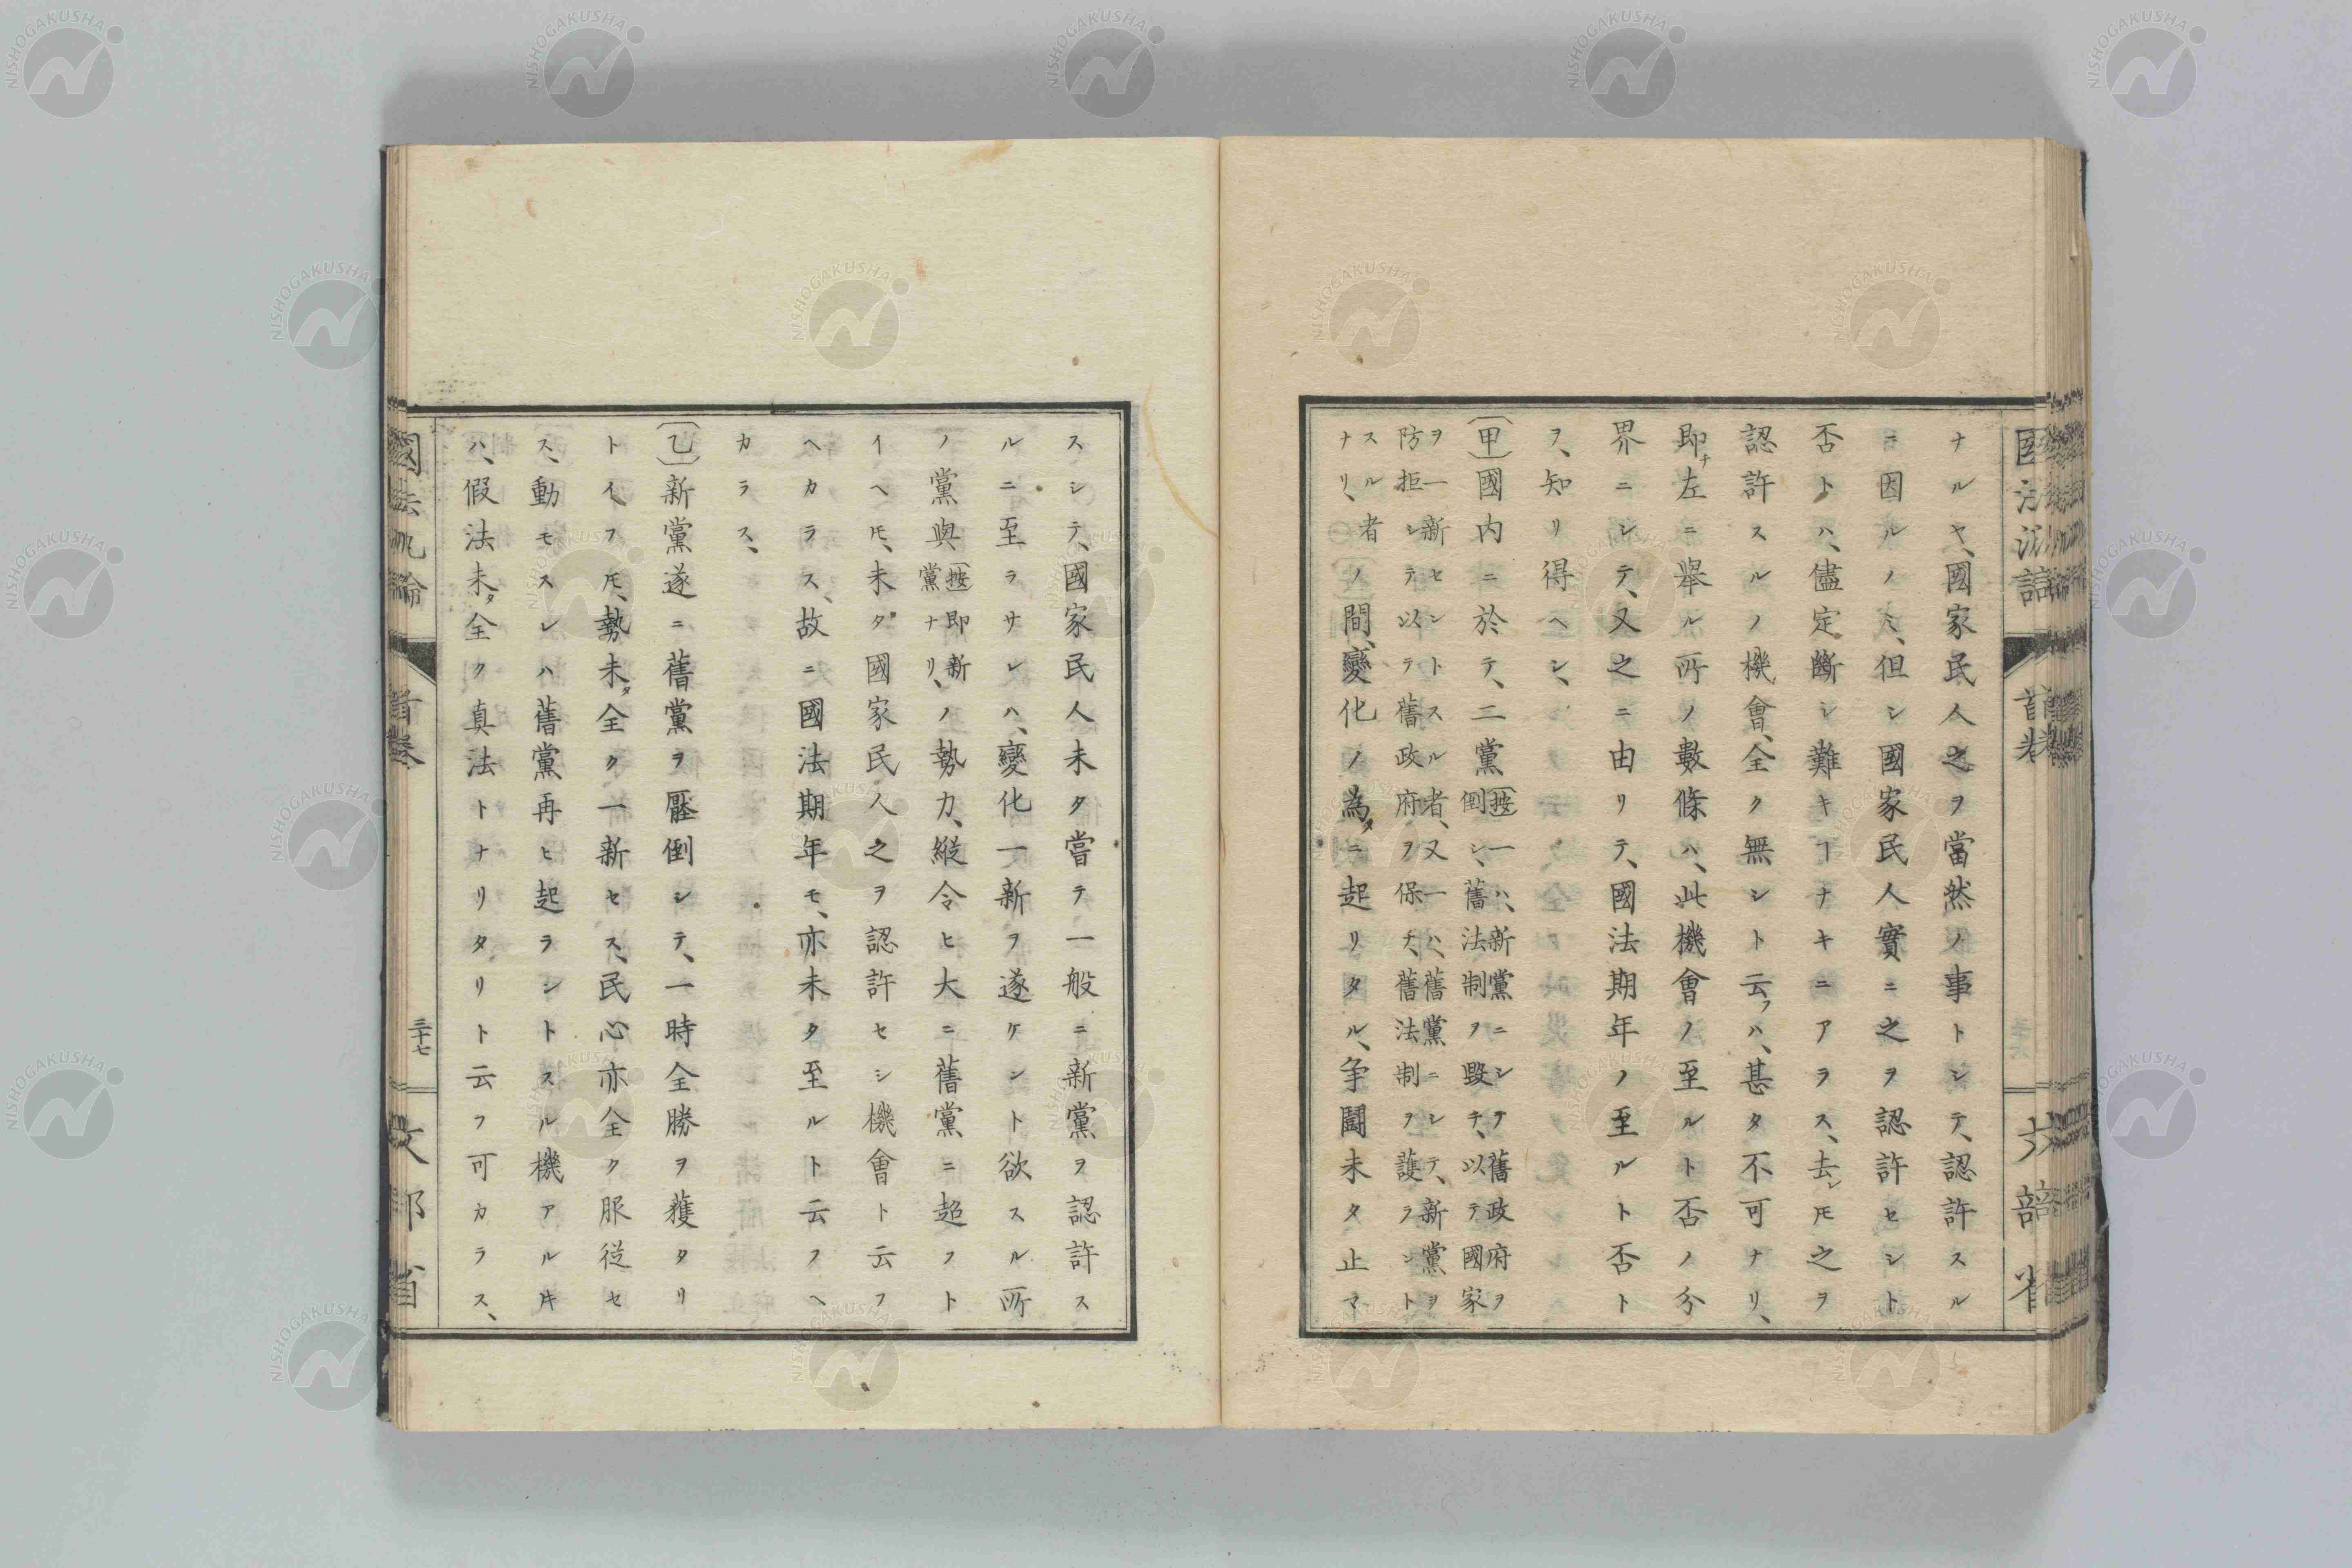 ナルヤ、國家民人之ヲ當然ノ事トシテ、認許スル
ニ因ルノミ、但シ國家民人實ニ之ヲ認許セシト
否トハ、儘定斷シ難キヿナキニアラス、去レ𪜈之ヲ
認許スルノ機會、全ク無シト云フハ、甚タ不可ナリ、
即ナ左ニ擧ル所ノ數條ハ、此機會ノ至ルト否ノ分
界ニシテ、又之ニ由リテ、國法期年ノ至ルト否ト
ヲ、知リ得ヘシ、
〔甲〕國内ニ於テ、二黨
〔按〕一ハ、新黨ニシテ舊政府ヲ
倒シ、舊法制ヲ毀チ、以テ國家
ヲ一新セントスル者、又一ハ、舊黨ニシテ、新黨ヲ
防拒シテ以テ舊政府ヲ保チ、舊法制ヲ護ラント
スル者
ナリ、
ノ間、變化ノ為タニ起リタル、争鬪未タ止マ
スシテ、國家民人未タ嘗テ一般ニ新黨ヲ認許ス
ルニ至ラサレハ、變化一新ヲ遂ケント欲スル所
ノ黨與
〔按〕即新
黨ナリ、
ノ勢力、縱令ヒ大ニ舊黨ニ超フト
イヘ𪜈、未タ國家民人之ヲ認許セシ機會ト云フ
ヘカラス、故ニ國法期年モ、亦未タ至ルト云フヘ
カラス、
〔乙〕新黨遂ニ舊黨ヲ壓倒シテ、一時全勝ヲ獲タリ
トイフ𪜈、勢未タ全ク一新セス、民心亦全ク服従セ
ス、動モスレハ舊黨再ヒ起ラントスル機アルキ
ハ、假法未タ全ク真法トナリタリト云フ可カラス、
國法汎論
首巻
三十七
文部省
NISHOGAKUSHA